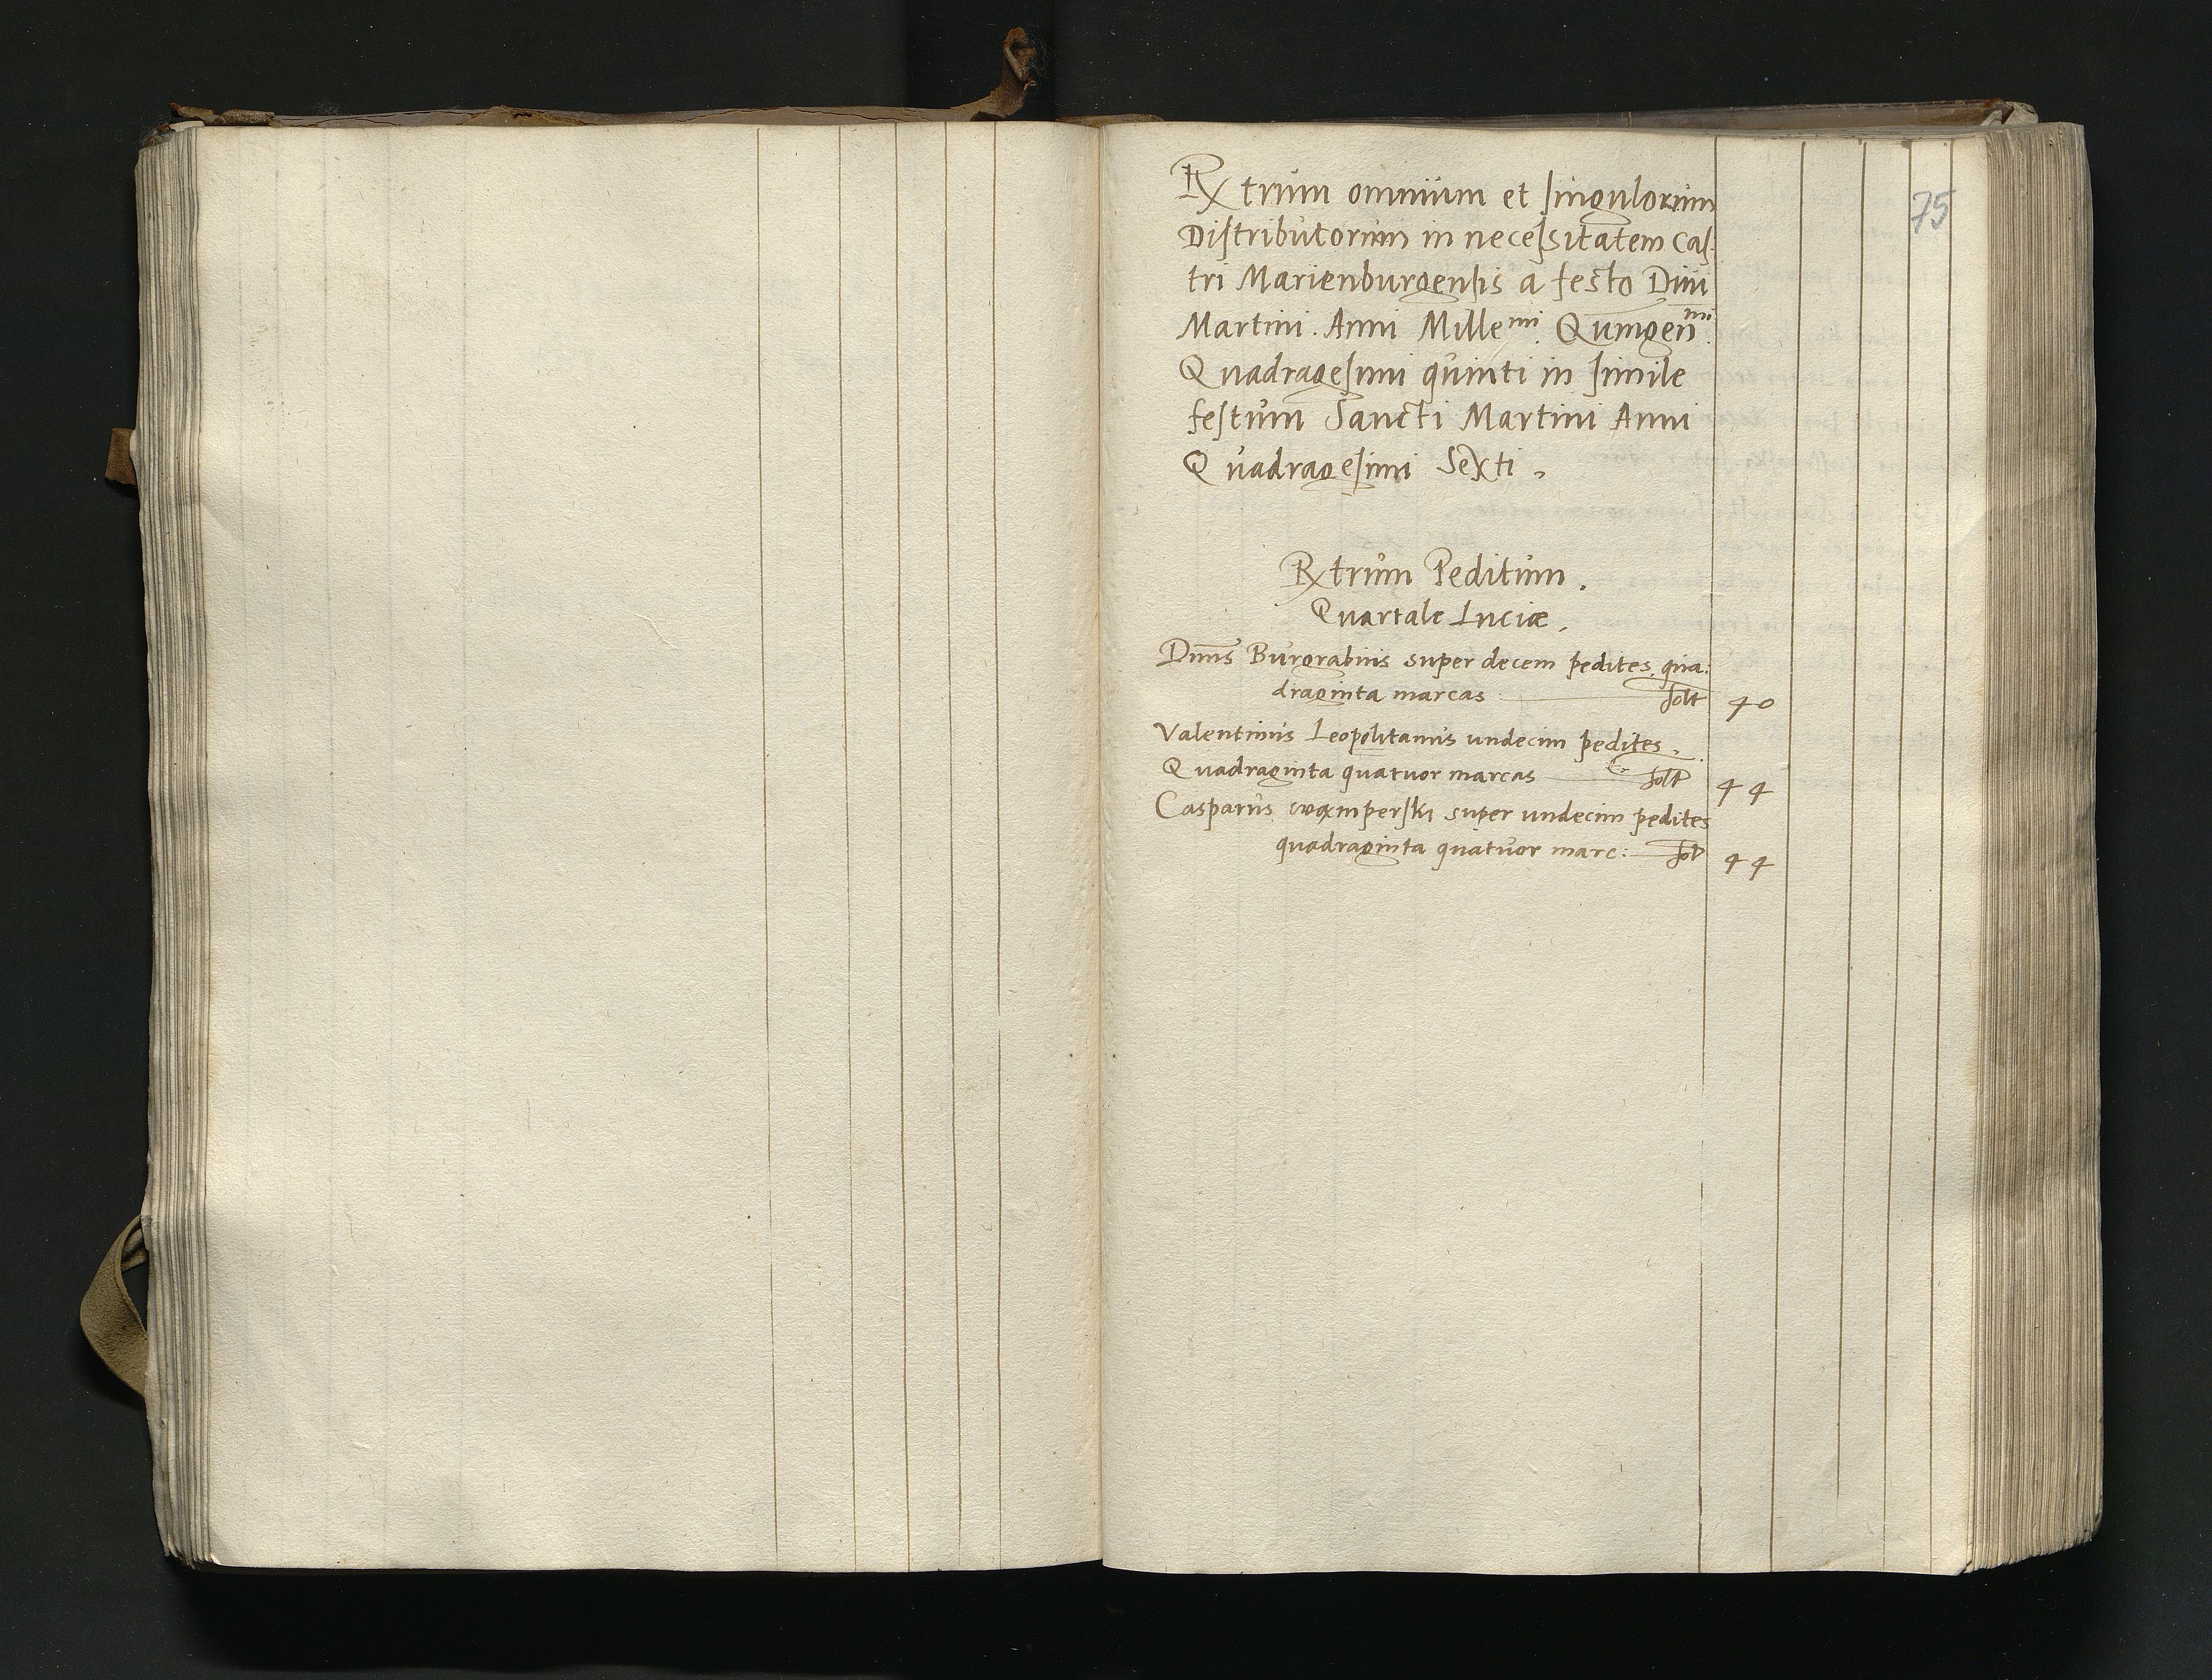 75
Rxtrum omnium et singulorum
Distributorum in necessitatem Cas:
tri Marienburgensis a festo Divi
Martini. Anni Millemi. Quingenmi.
Quadragesimi quinti in simile
festum Sancti Martini Anni
Quadragesimi Sexti.
Rxtrum Peditum.
Quartale Luciæ.
Dnus Burgrabius super decem pedites qua:
draginta marcas solt 40
Valentinus Leopolitanus undecim pedites.
Quadraginta quatuor marcas solt 44
Casparus super undecim pedites
quadraginta quatuor marc: sol 44